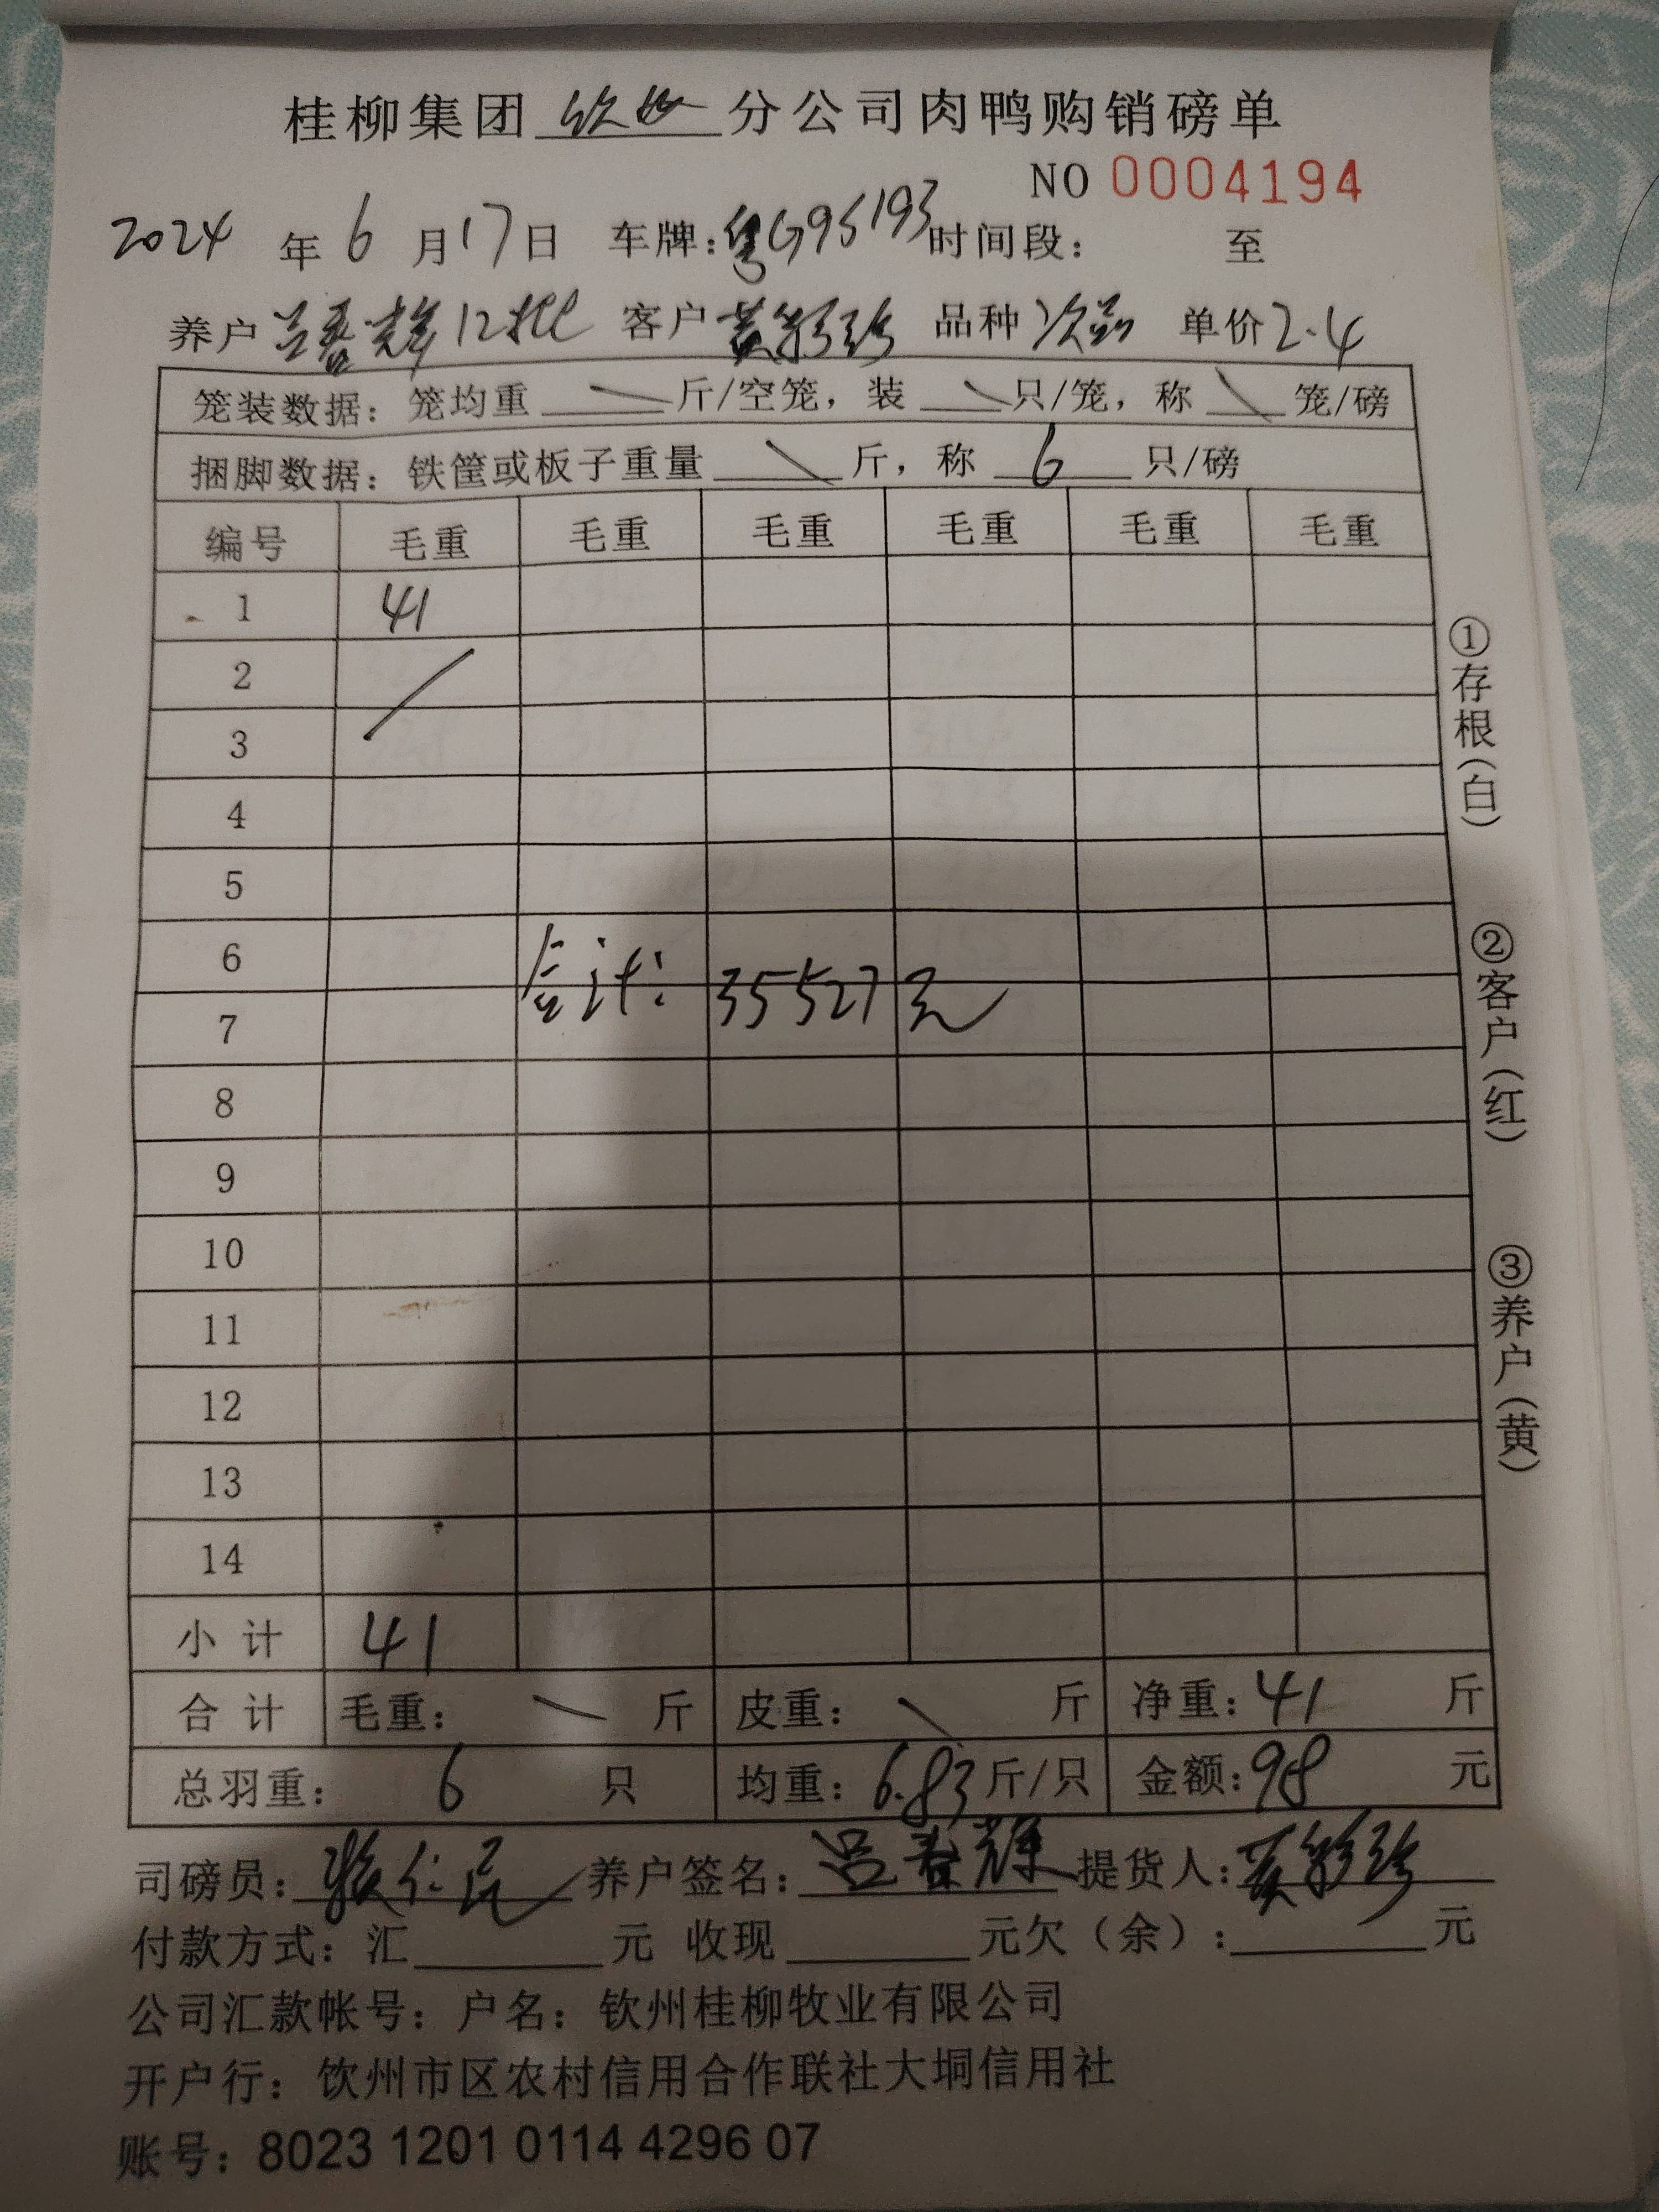 桂柳集团 钦州 分公司肉鸭购销磅单
NO 0004194
2024 年 6 月 17 日 车牌：粤G95193 时间段： 至
养户 吕春辉 12批 客户 黄彩珍 品种 次品 单价 2.4
笼装数据：笼均重 \ 斤/空笼，装 \ 只/笼，称 \ 笼/磅
捆脚数据：铁筐或板子重量 \ 斤，称 6 只/磅
编号 毛重 毛重 毛重 毛重 毛重 毛重
1 41
2 /
3
4
5
6
合计：35527元
7
8
9
10
11
12
13
14
小 计 41
合 计 毛重： \ 斤 皮重： \ 斤 净重：41 斤
总羽重： 6 只 均重：6.83 斤/只 金额：98 元
司磅员： 仁民 养户签名：吕春辉 提货人：黄彩珍
付款方式：汇 元 收现 元欠（余）： 元
公司汇款帐号：户名：钦州桂柳牧业有限公司
开户行：钦州市区农村信用合作联社大垌信用社
账号：8023 1201 0114 4296 07
①存根（白）
②客户（红）
③养户（黄）